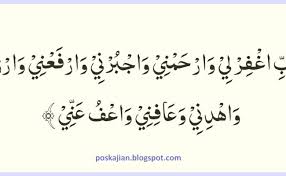 بِّ اغْفِرْ لِيْ وَارْحَمْنِيْ وَاجْبُرْنِيْ وَارْفَعْنِيْ وَارْز
وَاهْدِنِيْ وَعَافِنِيْ وَاعْفُ عَنِّيْ
poskajian.blogspot.com